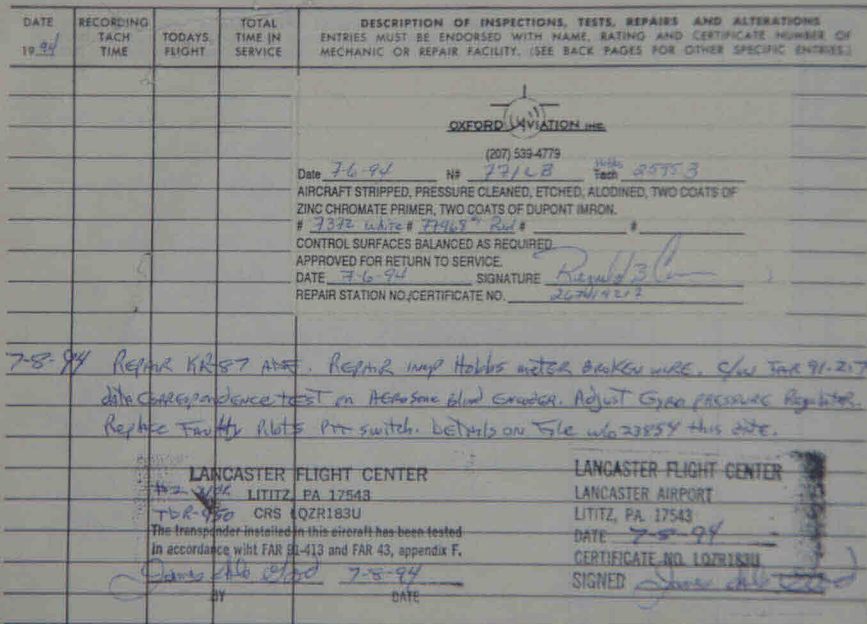 DATE
1994
RECORDING TACH TIME
TODAYS FLIGHT
TOTAL TIME IN SERVICE
DESCRIPTION OF INSPECTIONS, TESTS, REPAIRS AND ALTERATIONS
ENTRIES MUST BE ENDORSED WITH NAME, RATING AND CERTIFICATE NUMBER OF
MECHANIC OR REPAIR FACILITY. (SEE BACK PAGES FOR OTHER SPECIFIC ENTRIES.)
OXFORD AVIATION INC.
(207) 539-4779
Date 7-6-94 N# 771LB Hobbs Tach 2595.3
AIRCRAFT STRIPPED, PRESSURE CLEANED, ETCHED, ALODINED, TWO COATS OF
ZINC CHROMATE PRIMER, TWO COATS OF DUPONT IMRON.
# 7372 white # Red # #
CONTROL SURFACES BALANCED AS REQUIRED.
APPROVED FOR RETURN TO SERVICE.
DATE 7-6-94 SIGNATURE
REPAIR STATION NO./CERTIFICATE NO.
7-8-94 REPAIR KR87 ADF. REPAIR INOP Hobbs meter BROKEN WIRE. C/W FAR 91-217
data CORRESPONDENCE TEST on AEROSONIC blind ENCODER. Adjust Gyro PRESSURE Regulator.
Replace Faulty Pilots PTT switch. Details on File w/o 23854 this date.
LANCASTER FLIGHT CENTER
#2
LITITZ, PA 17543
TDR-950 CRS LQZR183U
The transponder installed in this aircraft has been tested
in accordance wiht FAR 91-413 and FAR 43, appendix F.
7-8-94
BY DATE
LANCASTER FLIGHT CENTER
LANCASTER AIRPORT
LITITZ, PA. 17543
DATE 7-8-94
CERTIFICATE NO. LQZR183U
SIGNED